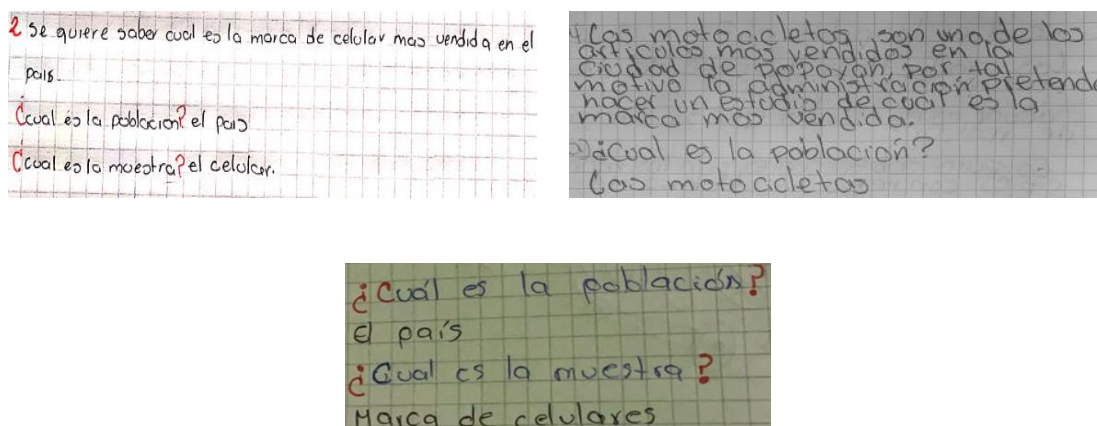 2 Se quiere saber cual es la marca de celular mas vendida en el
pais.
¿cual es la poblacion? el pais
¿cual es la muestra? el celular.
Las motocicletas son uno de los
articulos mas vendidos en la
ciudad de Popoyan, por tal
motivo la administración pretende
hacer un estudio de cual es la
marca mas vendida.
¿Cual es la población?
Las motocicletas
¿Cuál es la población?
El país
¿Cual es la muestra?
Marca de celulares